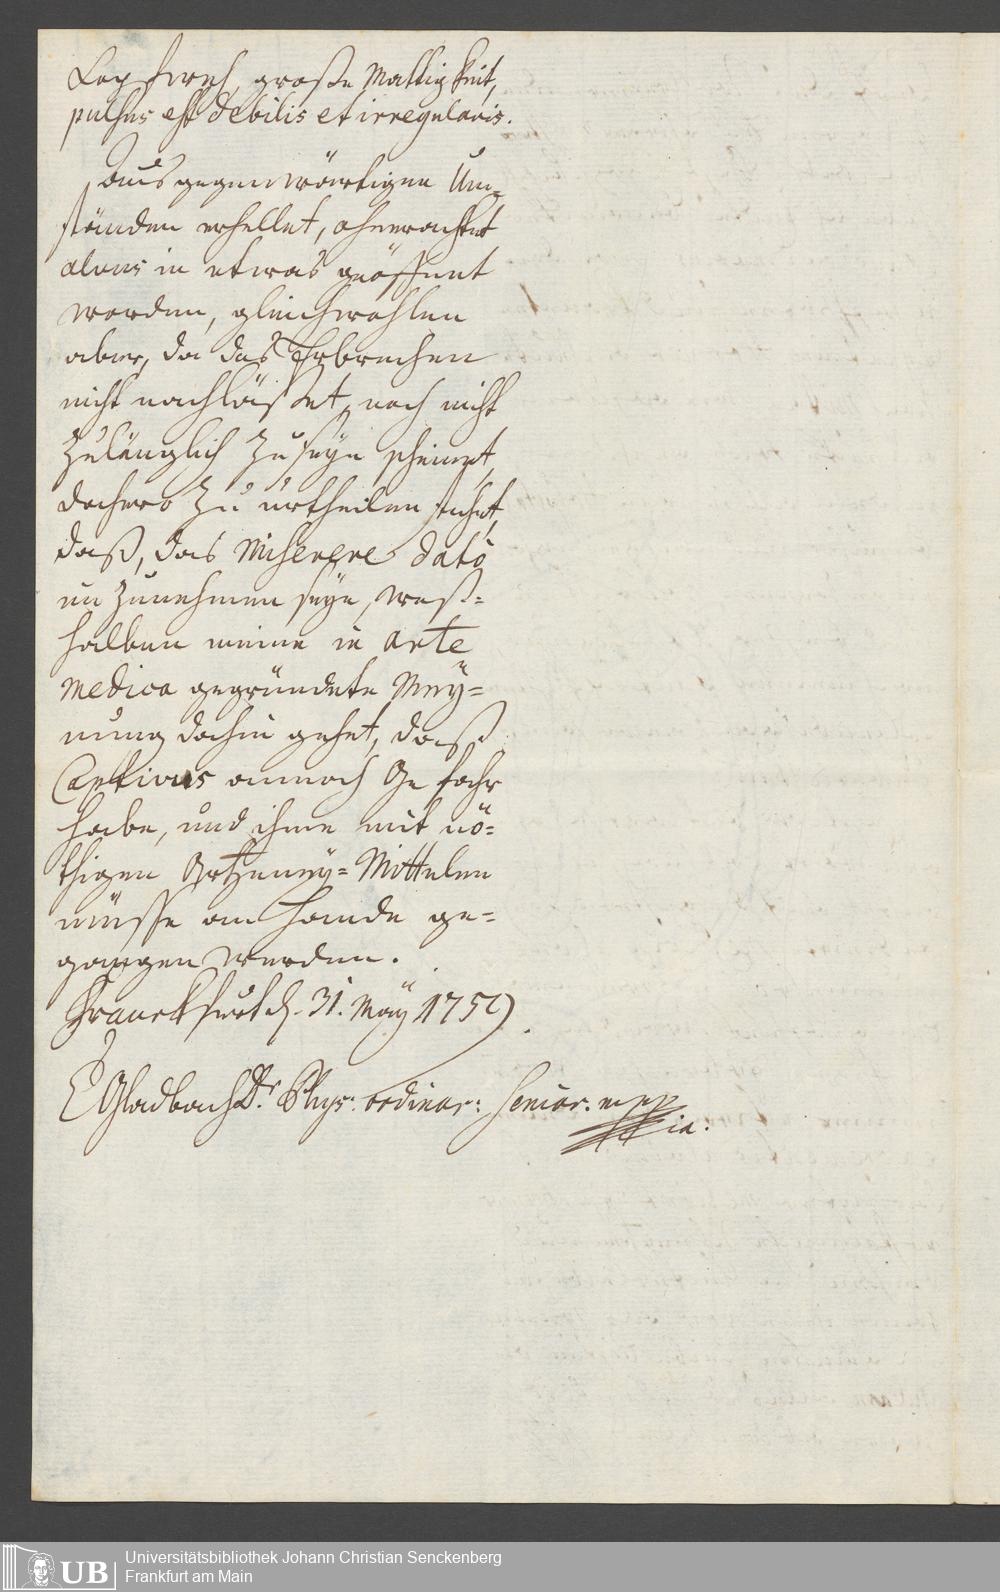 Kopfweh, große Mattigkeit,
pulsus est debilis et irregularis.
Aus gegenwärtigen Um-
ständen erhellet, ohnerachtet
alvus in etwas geöffnet
worden, gleichwohlen
aber, da das Erbrechen
nicht nachläßet, noch nicht
zulänglich zu seyn scheinet,
dahero zu urtheilen stehet,
daß, das Miserere dato
im Zunehmen seye, weß-
halben meine in arte
medica gegründete Meÿ-
nung dahin gehet, daß
Captivus annoch Gefahr
habe, und ihme mit nö-
thigen Artzeneÿ-Mittelen
müsse an Hande ge-
gangen werden.
Franckfurt d. 31. Maÿ 1757
Gladbach Dr. Phys: ordinar: Senior. mppia.
Universitätsbibliothek Johann Christian Senckenberg
Frankfurt am Main
UB